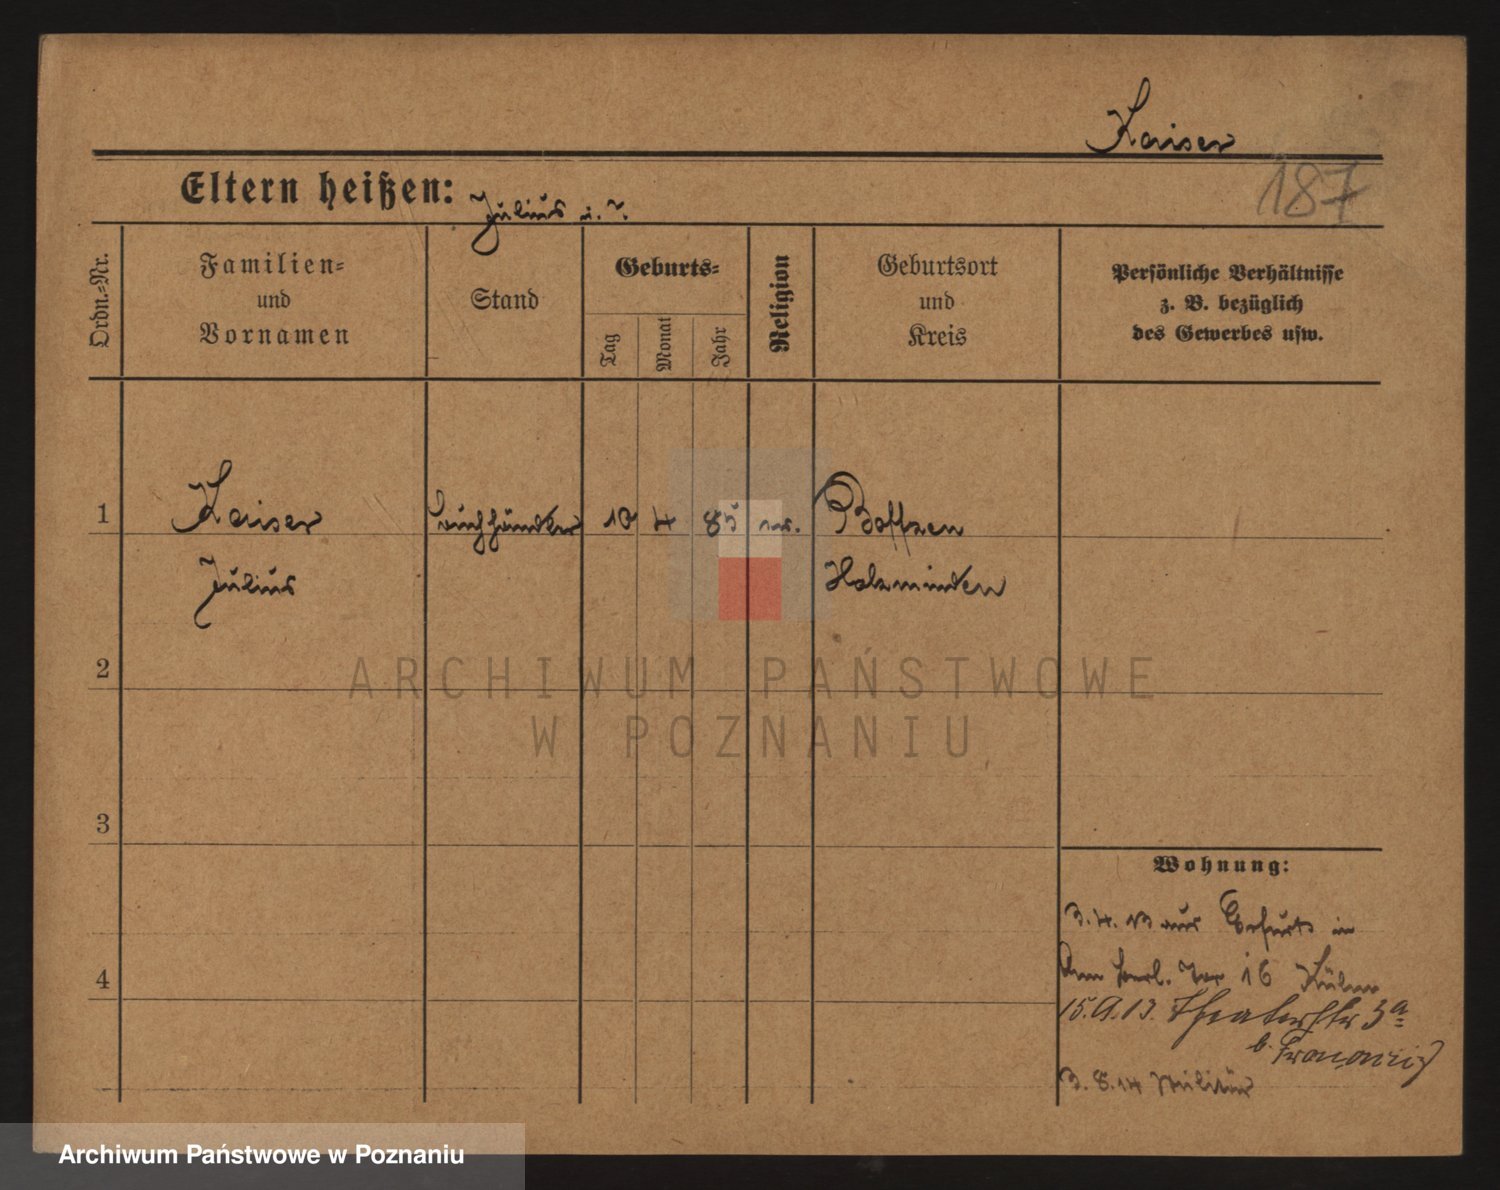 Kaiser
187
Eltern heißen: Julius u.
Ordn.-Nr.
Familien-
und
Vornamen
Stand
Geburts-
Tag
Monat
Jahr
Religion
Geburtsort
und
Kreis
Persönliche Verhältnisse
z. B. bezüglich
des Gewerbes usw.
1 Kaiser Buchhändler 10 4 85 ev. Boffzen
Julius Holzminden
2
3
4
Wohnung:
3. 4. 13 aus Erfurt in
Am Berl. Tor 16
15.9.13. Theaterstr 3a
b.
3. 8. 14 Militär
ARCHIWUM PAŃSTWOWE
W POZNANIU
Archiwum Państwowe w Poznaniu